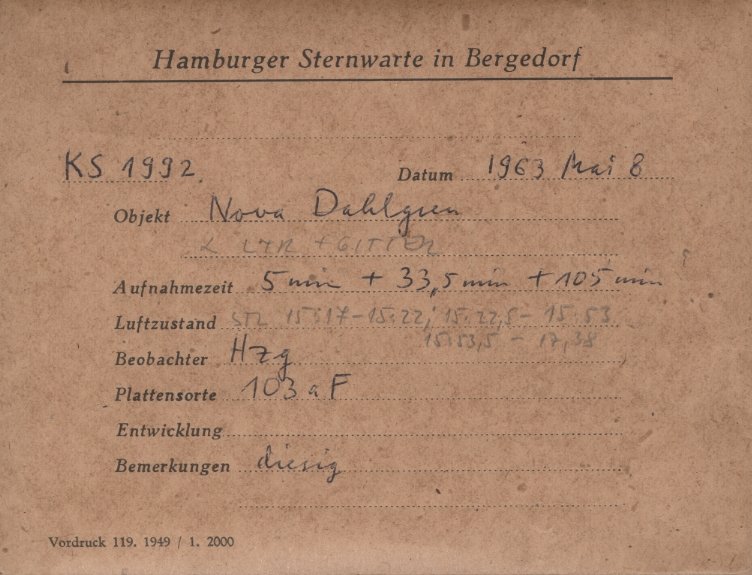 Hamburger Sternwarte in Bergedorf
KS 1992 Datum 1963 Mai 8
Objekt Nova Dahlgren
α LYR + GITTER
Aufnahmezeit 5 min + 33,5 min + 105 min
Luftzustand STZ 15:17-15:22, 15:22,5-15:53
15:53,5 - 17,38
Beobachter Hzg
Plattensorte 103 a F
Entwicklung
Bemerkungen diesig
Vordruck 119. 1949 / 1. 2000